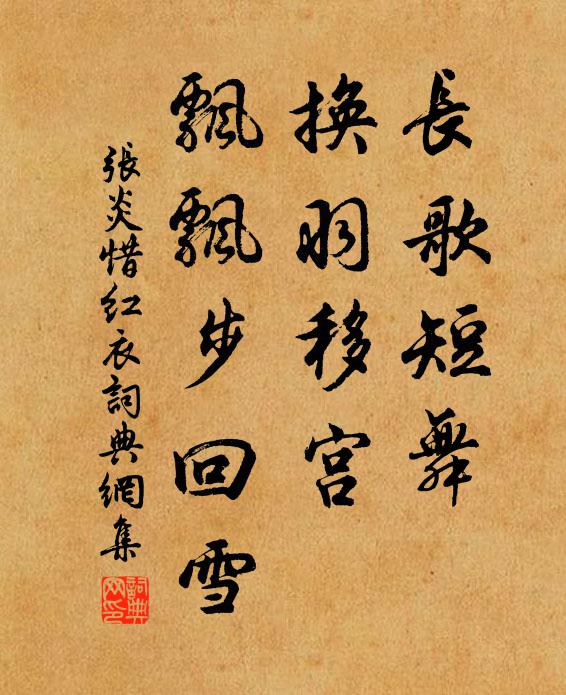 長歌短舞
換羽移宫
飄飄步回雪
張炎惜红衣詞典網集
詞典網印